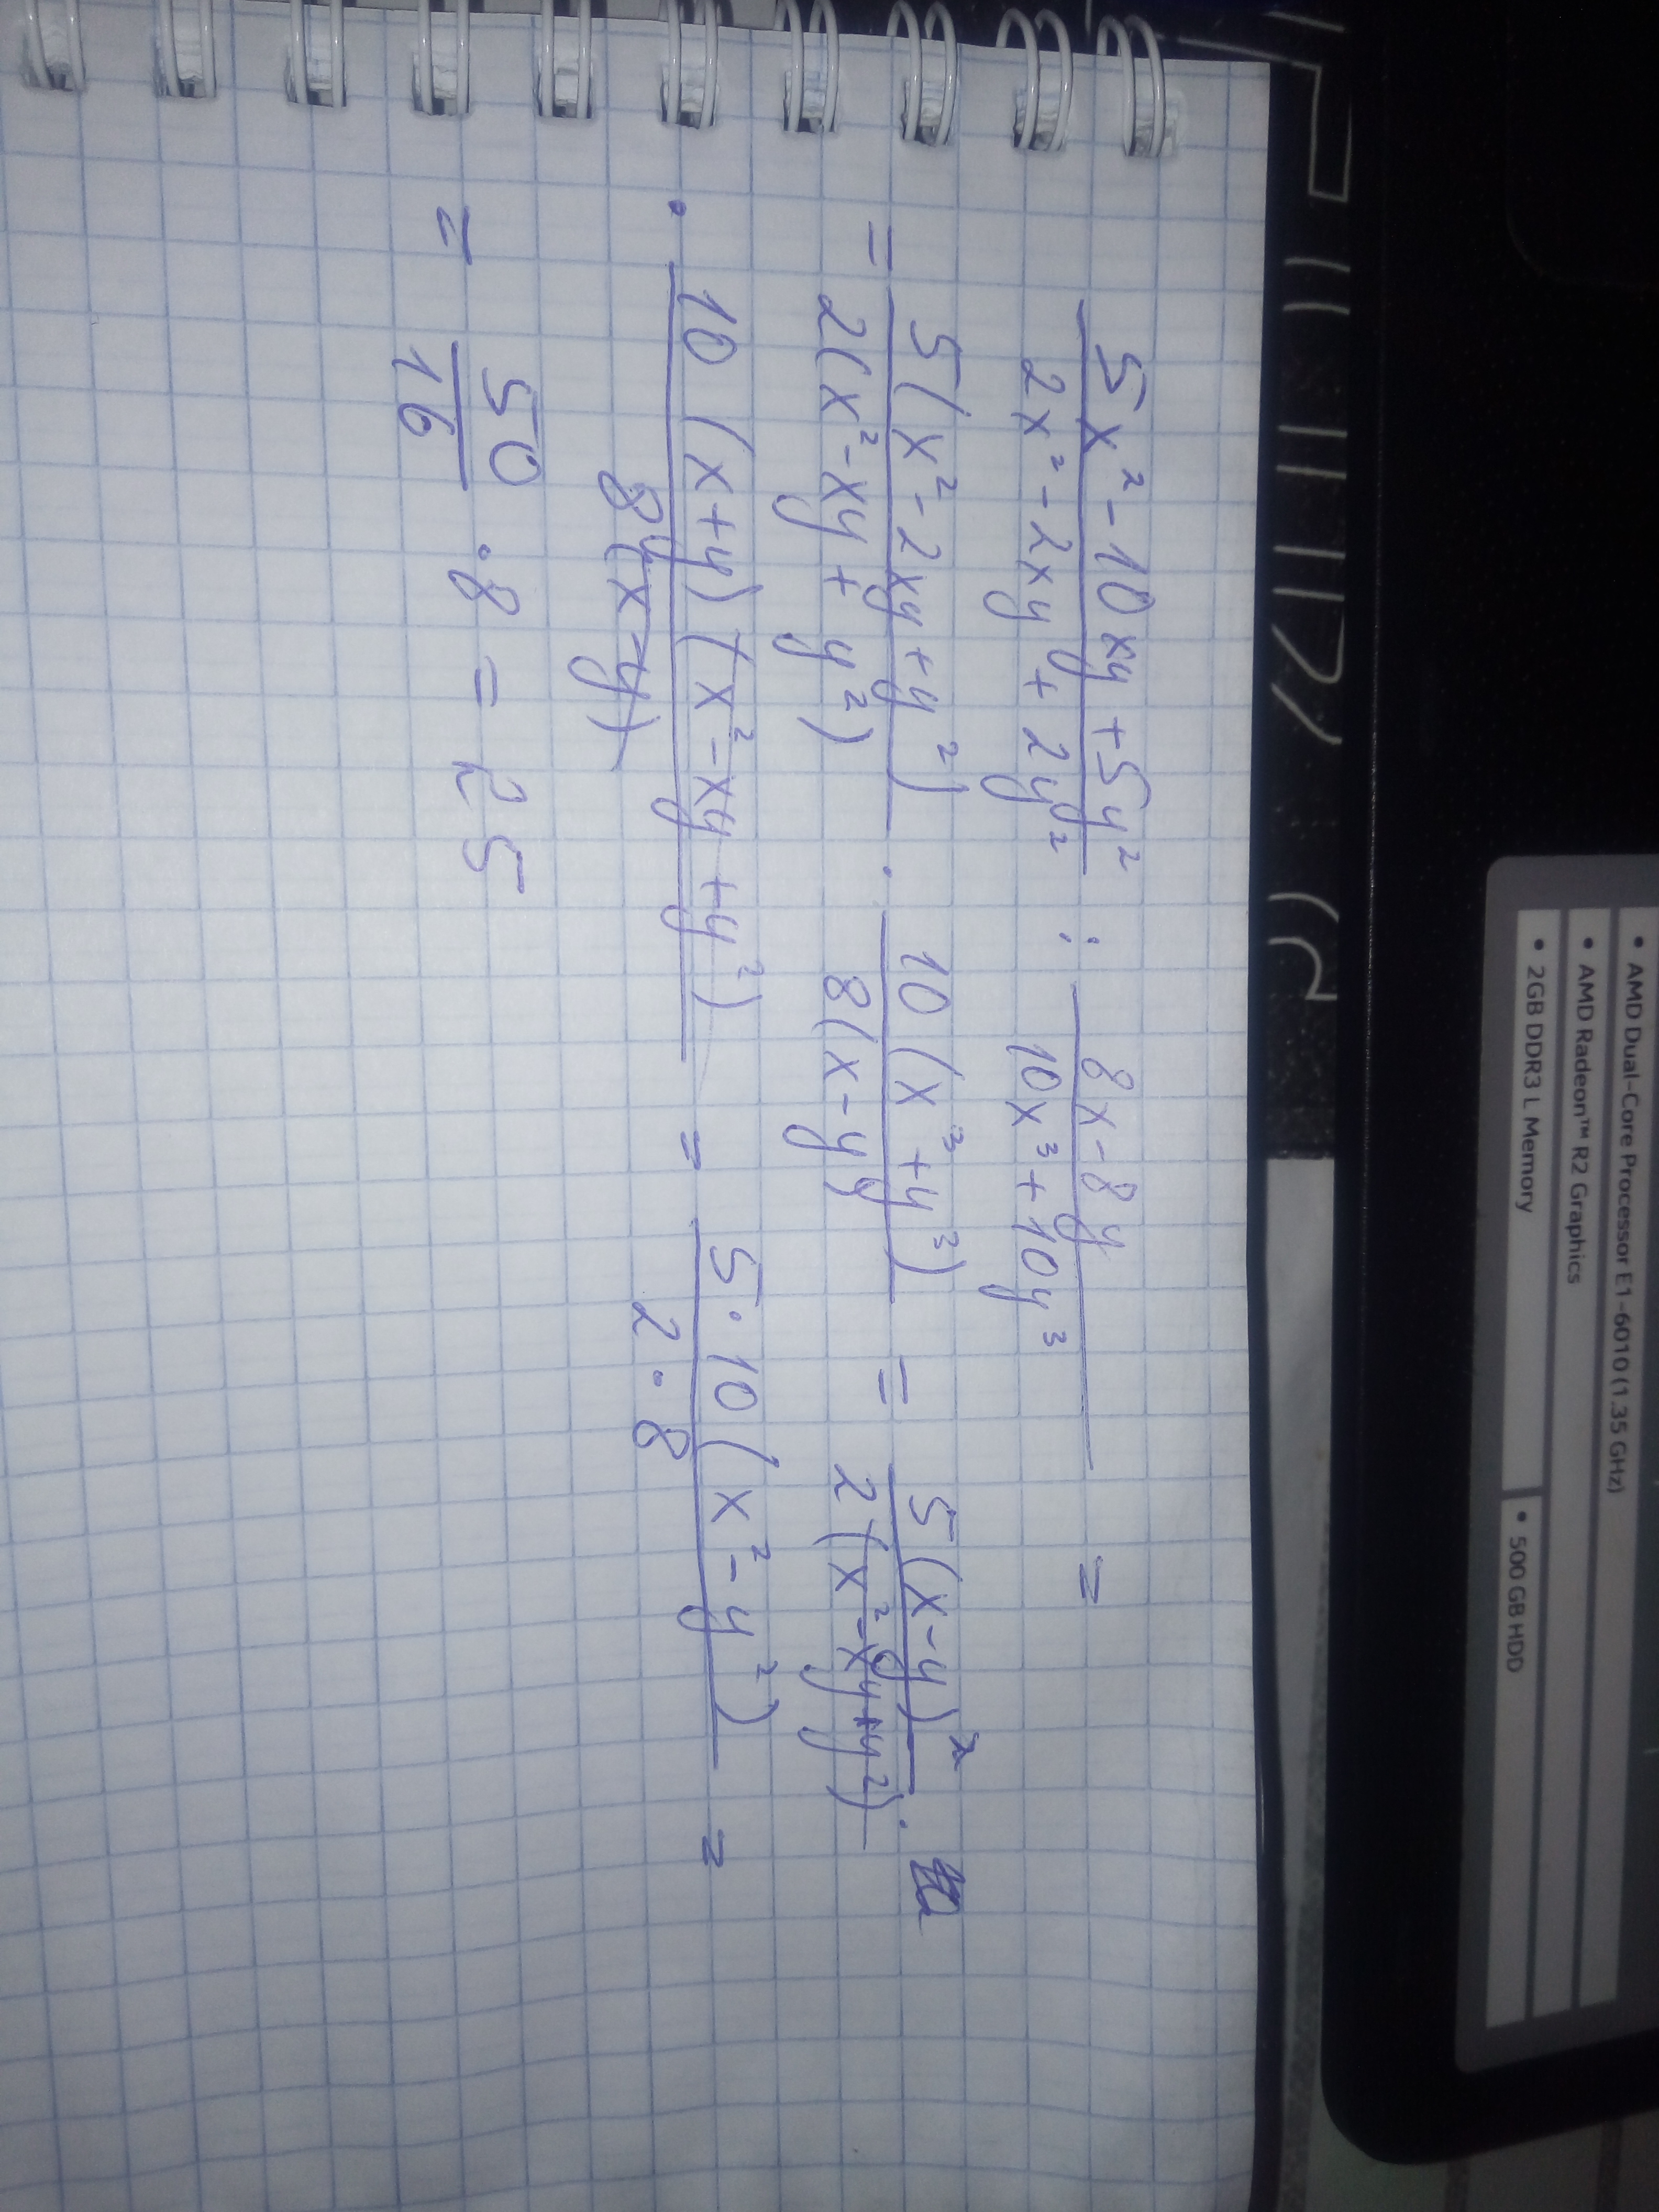 5x² - 10xy + 5y² / 2x² - 2xy + 2y² : 8x - 8y / 10x³ + 10y³ =
= 5(x² - 2xy + y²) / 2(x² - xy + y²) · 10(x³ + y³) / 8(x - y = 5(x - y)² / 2(x² - xy + y²) ·
· 10(x + y)(x² - xy + y²) / 8(x - y) = 5 · 10(x² - y²) / 2 · 8 =
= 50 / 16 · 8 = 25
• AMD Dual-Core Processor E1-6010 (1.35 GHz)
• AMD Radeon™ R2 Graphics
• 2GB DDR3 L Memory • 500 GB HDD